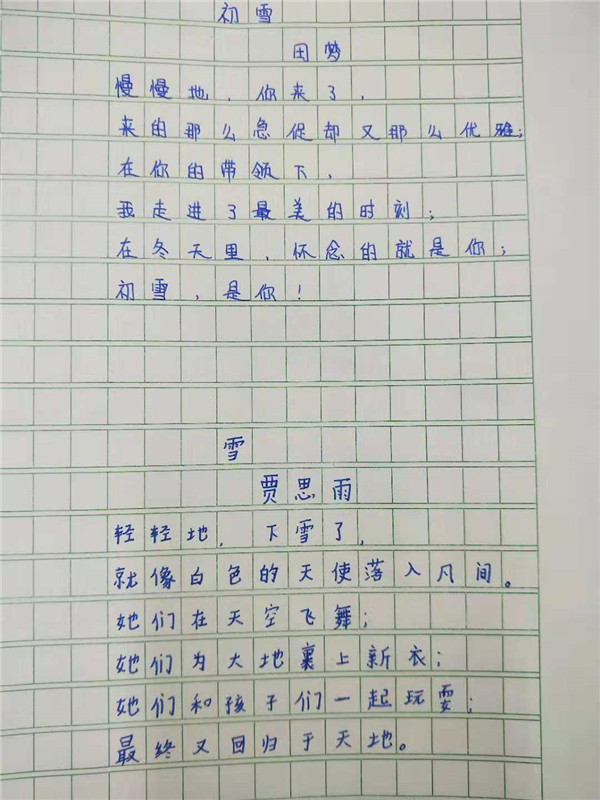 初雪
田梦
慢慢地，你来了，
来的那么急促却又那么优雅；
在你的带领下，
我走进了最美的时刻；
在冬天里，怀念的就是你；
初雪，是你！
雪
贾思雨
轻轻地，下雪了，
就像白色的天使落入凡间。
她们在天空飞舞；
她们为大地裹上新衣；
她们和孩子们一起玩耍；
最终又回归于天地。